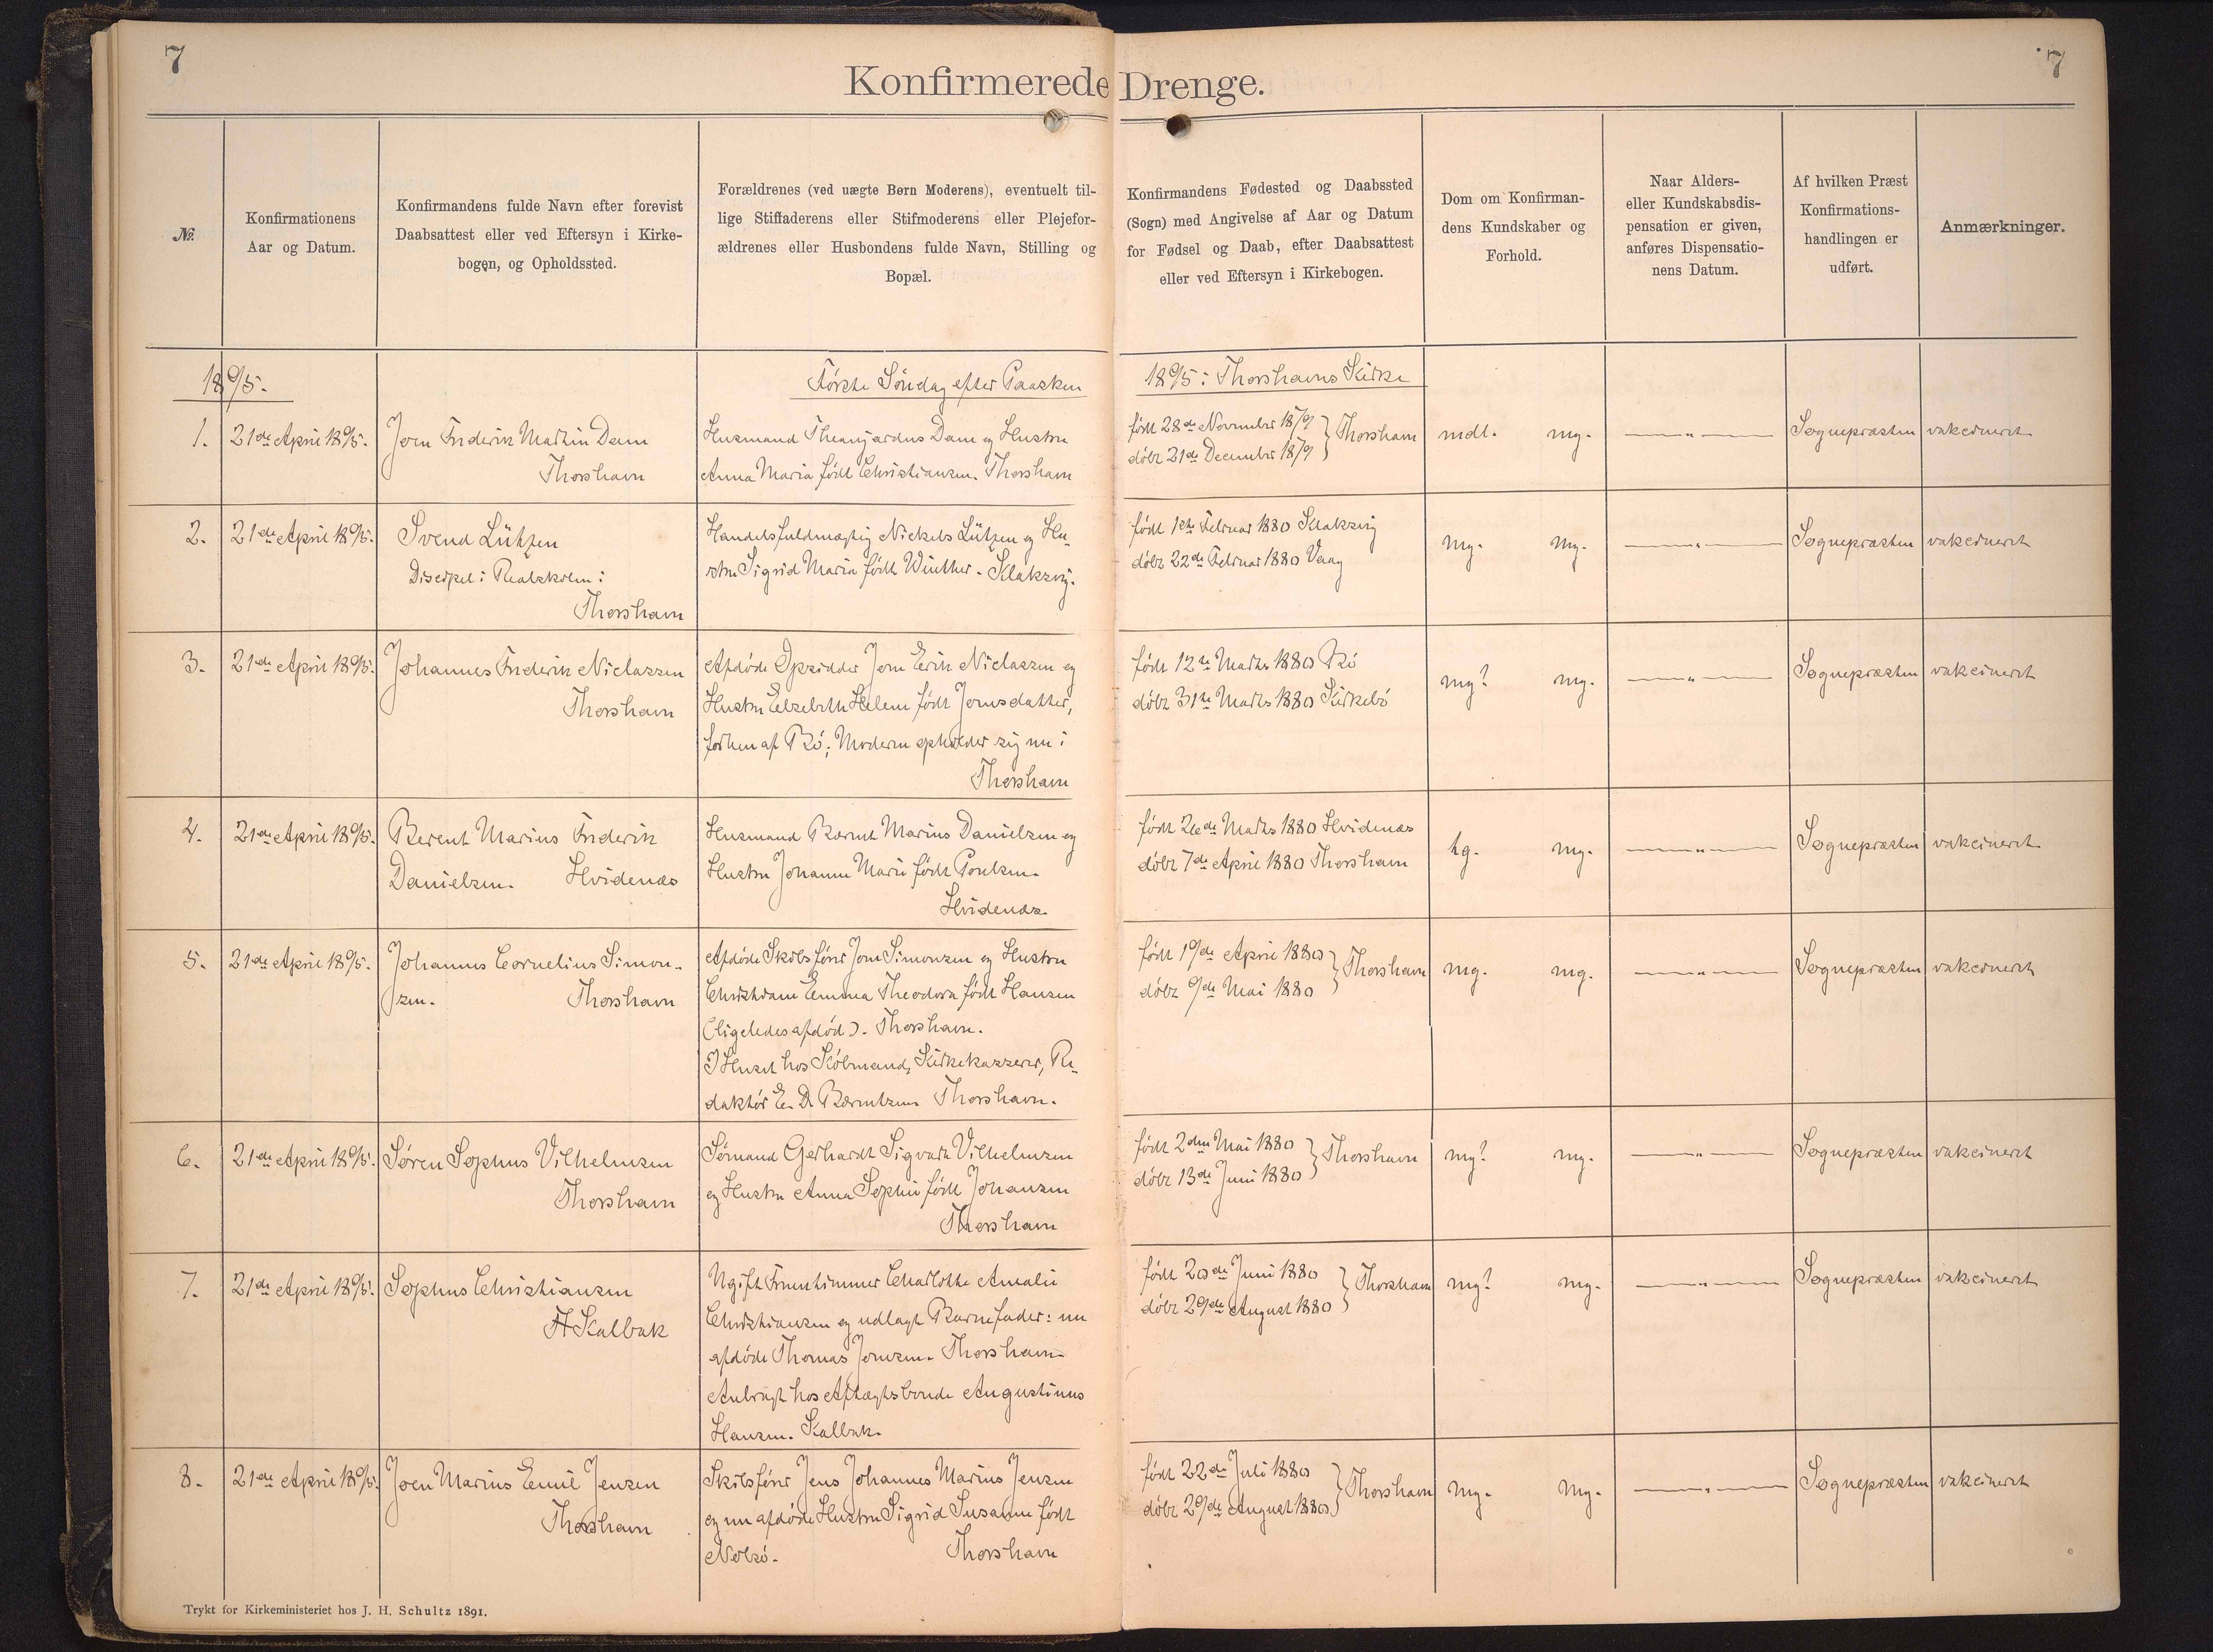 7
7
Konfirmerede Drenge.
№.
Konfirmationens
Aar og Datum.
Konfirmandens fulde Navn efter forevist
Daabsattest eller ved Eftersyn i Kirke-
bogen, og Opholdssted.
Forældrenes (ved uægte Børn Moderens), eventuelt til-
lige Stiffaderens eller Stifmoderens eller Plejefor-
ældrenes eller Husbondens fulde Navn, Stilling og
Bopæl.
Konfirmandens Fødested og Daabssted
(Sogn) med Angivelse af Aar og Datum
for Fødsel og Daab, efter Daabsattest
eller ved Eftersyn i Kirkebogen.
Dom om Konfirman-
dens Kundskaber og
Forhold.
Naar Alders-
eller Kundskabsdis-
pensation er given,
anføres Dispensatio-
nens Datum.
Af hvilken Præst
Konfirmations-
handlingen er
udført.
Anmærkninger.
1895.
Første Søndag efter Paasken
1895 i Thorshavns Kirke
1.
21de April 1895.
Joen Frederik Martin Dam
Thorshavn
Husmand Dam og Hustru
Anna Maria født Christiansen. Thorshavn
født 28de November 1879
døbt 21de December 1879
Thorshavn
mdl. mg.
Sognepræsten
vakcineret
2.
21de April 1895.
Svend Lützen
Discipel i Realskolen i
Thorshavn
Handelsfuldmægtig Nickels Lützen og Hu-
stru Sigrid Maria født Winther. Klaksvig.
født 1ste Februar 1880 Klaksvig
døbt 22de Februar 1880 Vaag
mg. mg.
Sognepræsten
vakcineret
3.
21de April 1895.
Johannes Frederik Niclassen
Thorshavn
Afdøde Opsidder Joen Erik Niclassen og
Hustru Elsebeth Helene født Joensdatter,
forhen af Bø; Moderen opholder sig nu i
Thorshavn
født 12te Marts 1880 Bø
døbt 31te Marts 1880 Kirkebø
mg? mg.
Sognepræsten
vakcineret
4.
21de April 1895.
Berent Marius Frederik
Danielsen. Hvidenæs
Husmand Bærent Marius Danielsen og
Hustru Johanne Marie født Poulsen.
Hvidenæs.
født 26de Marts 1880 Hvidenæs
døbt 7de April 1880 Thorshavn
tg. mg.
Sognepræsten
vakcineret
5.
21de April 1895.
Johannes Cornelius Simon-
sen. Thorshavn
Afdøde Skibsfører Joen Simonsen og Hustru
Christiane Emma Theodora født Hansen
(ligeledes afdød). Thorshavn.
I Huset hos Købmand, Kirkekasserer, Re-
daktør E. D. Bærentsen Thorshavn.
født 19de April 1880
døbt 9de Mai 1880
Thorshavn
mg. mg.
Sognepræsten
vakcineret
6.
21de April 1895.
Søren Sophus Vilhelmsen
Thorshavn
Sømand Gerhardt Sigvart Vilhelmsen
og Hustru Anna Sophie født Johansen
Thorshavn
født 2den Mai 1880
døbt 13de Juni 1880
Thorshavn
mg? mg.
Sognepræsten
vakcineret
7.
21de April 1895.
Sophus Christiansen
Kalbak
Ugift Fruentimmer Charlotte Amalie
Christiansen og udlagt Barnefader: nu
afdøde Thomas Joensen. Thorshavn.
Anbragt hos Aftægtsbonde Augustinus
Hansen. Kalbak.
født 20de Juni 1880
døbt 29de August 1880
Thorshavn
mg? mg.
Sognepræsten
vakcineret
8.
21de April 1895.
Joen Marius Emil Jensen
Thorshavn
Skibsfører Jens Johannes Marius Jensen
og nu afdøde Hustru Sigrid Susanne født
Nolsø. Thorshavn
født 22de Juli 1880
døbt 29de August 1880
Thorshavn
mg. mg.
Sognepræsten
vakcineret
Trykt for Kirkeministeriet hos J. H. Schultz 1891.